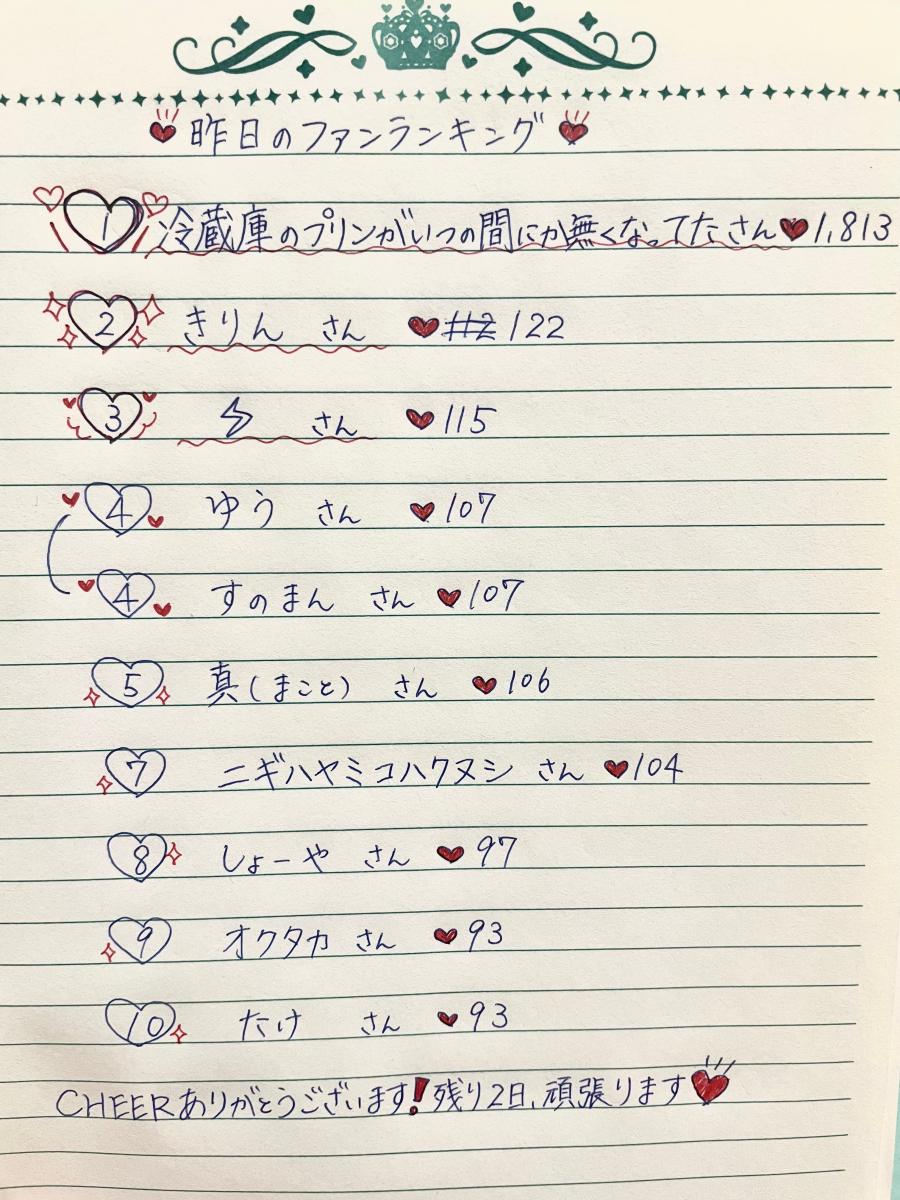 昨日のファンランキング
1 冷蔵庫のプリンがいつの間にか無くなってたさん♥1,813
2 きりん さん ♥122
3 さん ♥115
4 ゆう さん ♥107
4 すのまん さん ♥107
5 真(まこと) さん ♥106
7 ニギハヤミコハクヌシ さん ♥104
8 しょーや さん ♥97
9 オクタカ さん ♥93
10 たけ さん ♥93
CHEERありがとうございます!残り2日、頑張ります♥